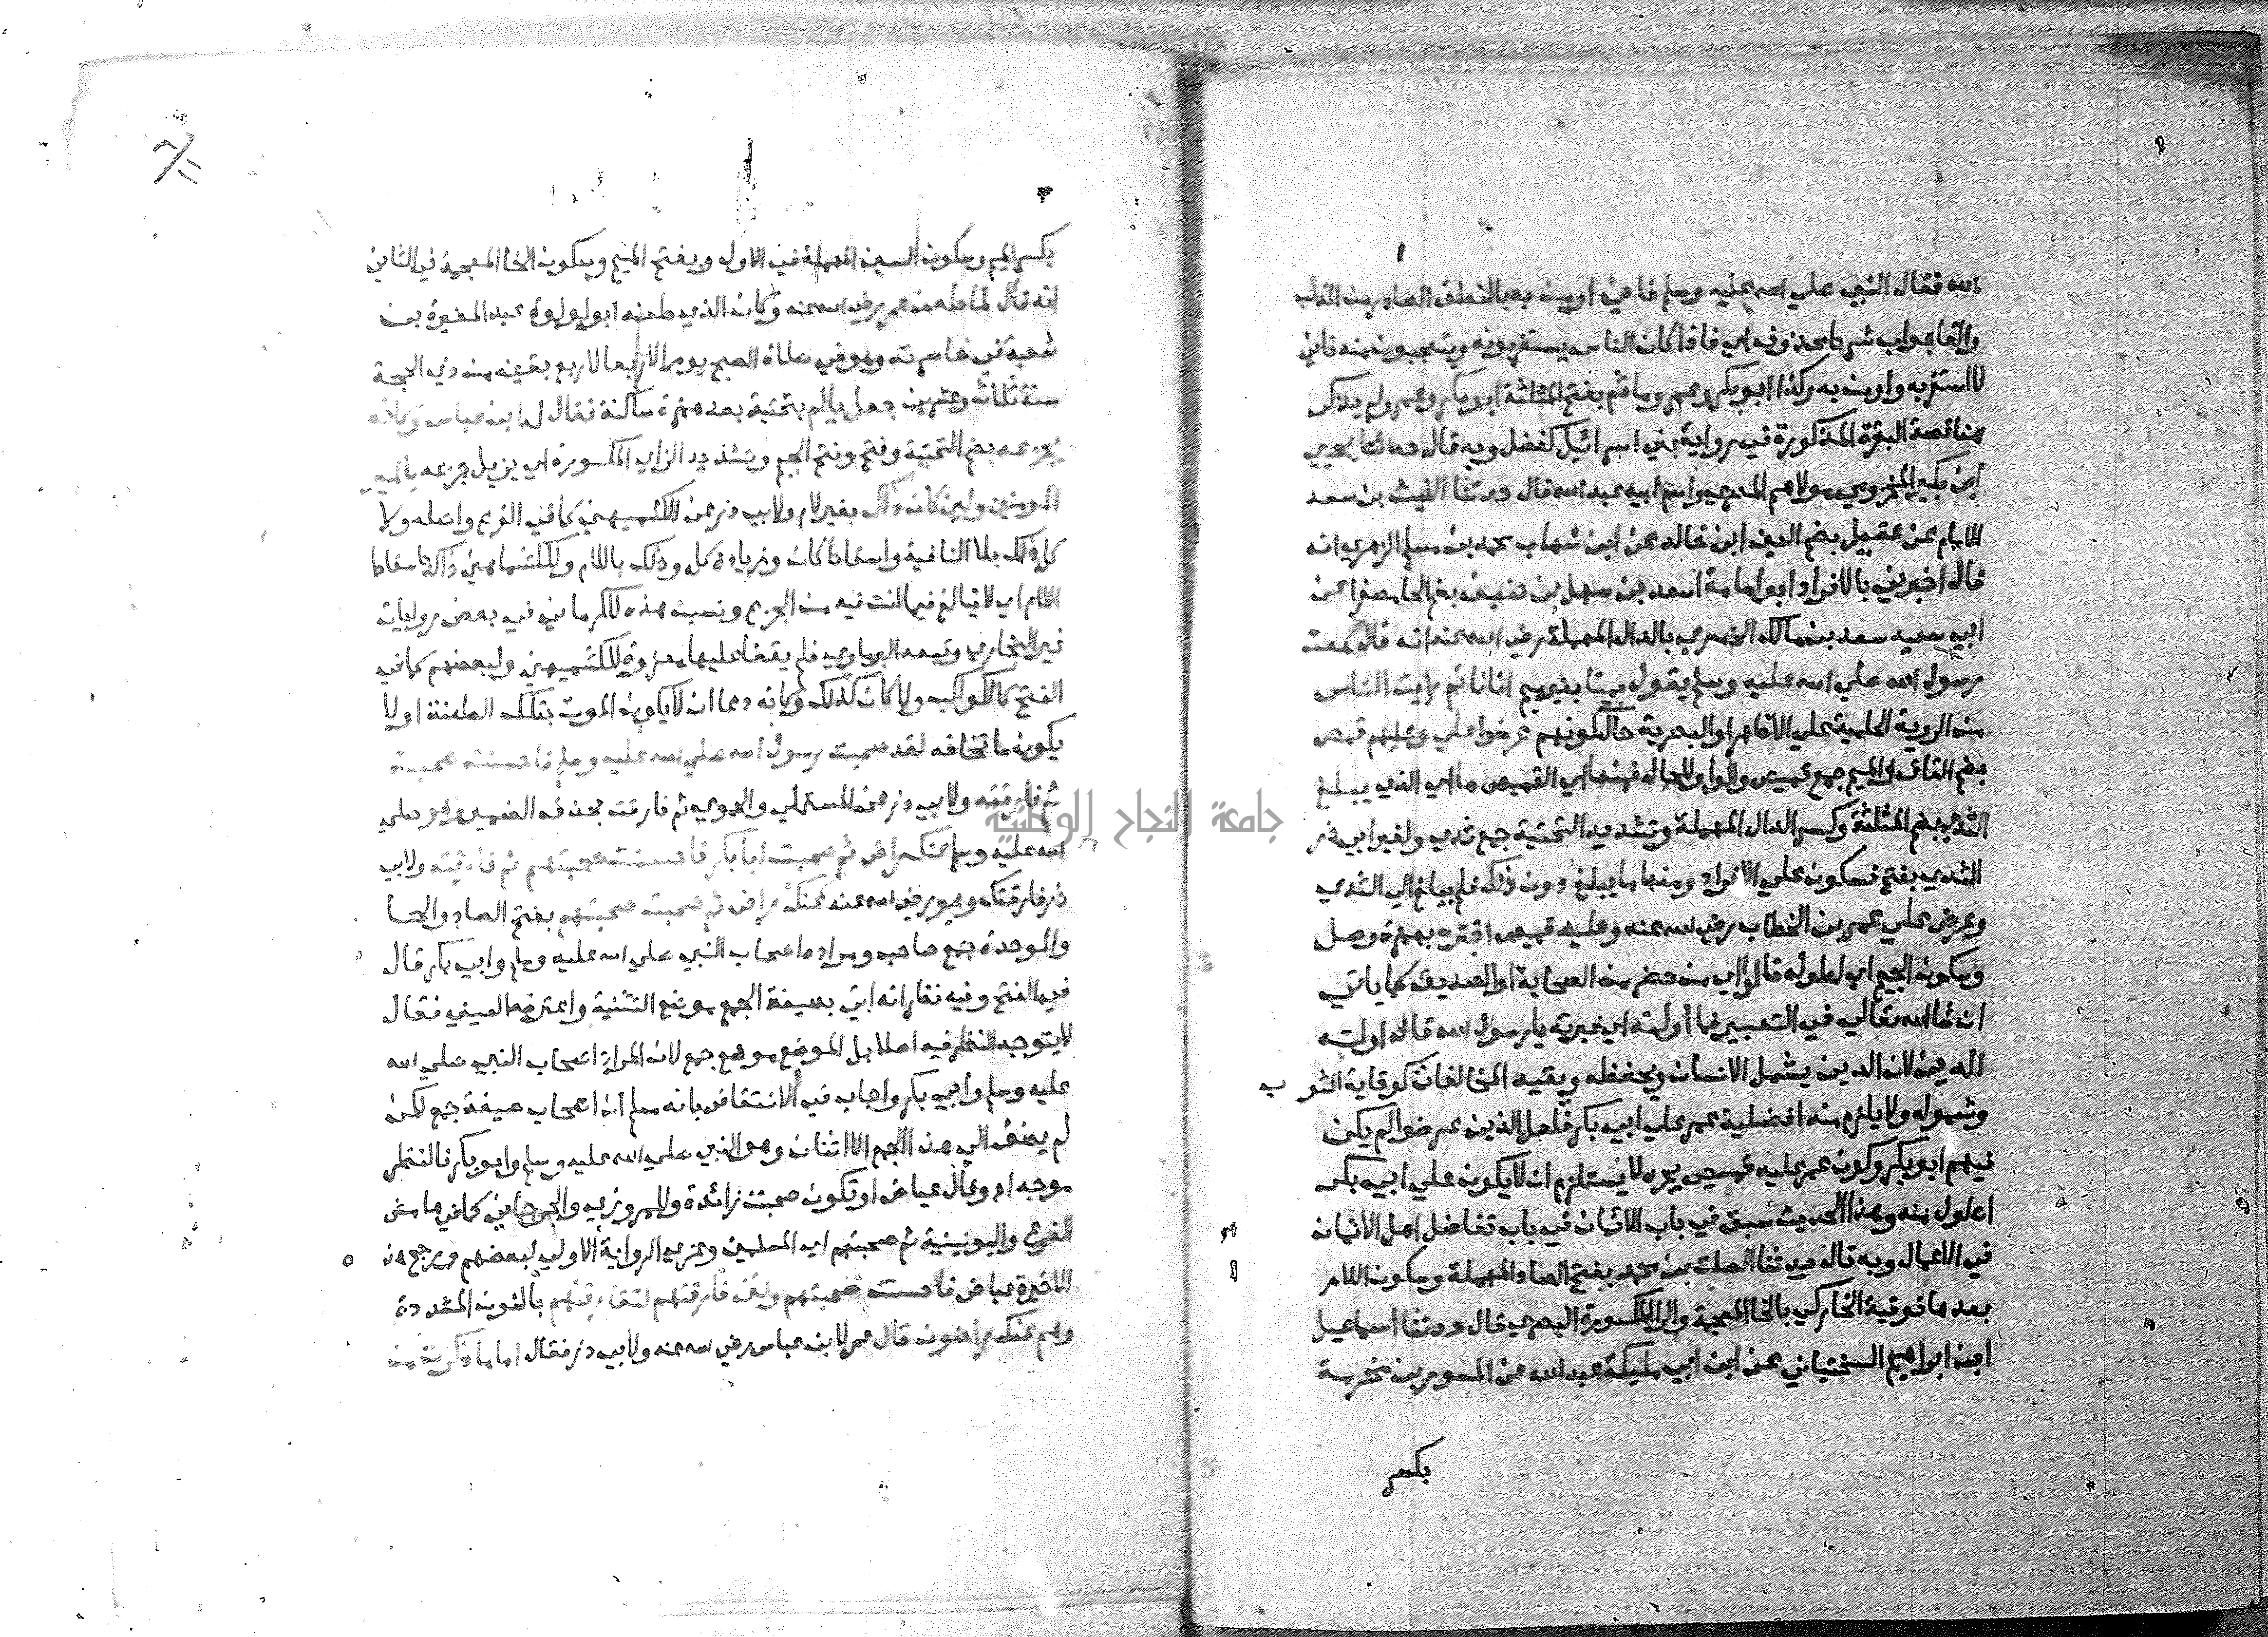 الله فقال النبي صلي الله عليه وسلم فاني اومن به بالنطق الصادر من الذئب
والفا جواب شرط محذوف اي فاذا كان الناس يستغربونه ويتعجبون منه فاني
لا استغربه واومن به وكذا ابو بكر وعمر وما ثم بفتح المثلثة ابو بكر وعمر ولم يذكر
هنا قصة البقرة المذكورة في رواية بني اسرائيل لفضل وبه قال حدثنا يحيي
ابن بكير المخزومي مولاهم المصري واسم ابيه عبد الله قال حدثنا الليث بن سعد
الامام عن عقيل بضم العين ابن خالد عن ابن شهاب محمد بن مسلم الزهري انه
قال اخبرني بالافراد ابو امامة اسعد بن سهل بن حنيف بضم الحا مصغرا عن
ابي سعيد سعد بن مالك الخدري بالدال المهملة رضي الله عنه انه قال سمعت
رسول الله صلي الله عليه وسلم يقول بينا بغير ميم انا نائم رايت الناس
من الروية الحلمية علي الاظهر او البصرية حال كونهم عرضوا علي وعليهم قمص
بضم القاف والميم جمع قميص والواو للحال فمنها اي القميص ما اي الذي يبلغ
الثدي بضم المثلثة وكسر الدال المهملة وتشديد التحتية جمع ثدي ولغير ابي ذر
الثدي بفتح فسكون علي الافراد ومنها ما يبلغ دون ذلك فلم يبلغ الي الثدي
وعرض علي عمر بن الخطاب رضي الله عنه وعليه قميص اجتره بهمزة وصل
وسكون الجيم اي لطوله قالوا اي من حضر من الصحابة او الصديق كما ياتي
ان شا الله تعالي في التعبير فما أولته اي عبرته يا رسول الله قال اولته
الدين لان الدين يشمل الانسان ويحفظه ويقيه المخالفات كوقاية الثوب
وشموله ولا يلزم منه افضلية عمر علي ابي بكر فلعل الذين عرضوا لم يكن
فيهم ابو بكر وكون عمر عليه قميص يجره لا يستلزم ان لا يكون علي ابي بكر
اطول منه وهذا الحديث سبق في باب الايمان في باب تفاضل اهل الايمان
في الاعمال وبه قال حدثنا الصلت بن محمد بفتح الصاد المهملة وسكون اللام
بعدها فوقية الخاركي بالخا المعجمة والرا المكسورة البصري قال حدثنا اسماعيل
ابن ابراهيم السختياني عن ابن ابي مليكة عبد الله عن المسور بن مخرمة
بكسر
بكسر الميم وسكون السين المهملة في الاول وبفتح الميم وسكون الخا المعجمة في الثاني
انه قال لما طعن عمر رضي الله عنه وكان الذي طعنه ابو لولوة عبد المغيرة بن
شعبة في خاصرته وهو في صلاة الصبح يوم الاربعا لاربع بقين من ذي الحجة
سنة ثلاث وعشرين جعل يالم بتحتية بعد همزة ساكنة فقال له ابن عباس وكانه
يجزعه بضم التحتية وفتح وفتح الجيم وتشديد الزاي المكسورة اي يزيل جزعه يا امير
المومنين ولين كان ذاك بغير لام ولابي ذر عن الكشميهني كما في الفرع واصله ولا
كل ذلك بلا النافية واسقاط كان وزيادة كل وذلك باللام وللكشميهني ذاك باسقاط
اللام اي لا تبالغ فيما انت فيه من الجزع ونسبت هذه للكرماني في بعض روايات
غير البخاري وتبعه البرماوي فلم يقفا عليها معزوة للكشميهني ولبعضهم كما في
الفتح كالكواكب ولا كان كذلك وكانه دعا ان لا يكون الموت بتلك الطعنة او لا
يكون ما تخافه لقد صحبت رسول الله صلي الله عليه وسلم فاحسنت صحبته
ثم فارقته ولابي ذر عن المستملي والحموي ثم فارقت بحذف الضمير وهو صلي
الله عليه وسلم عنك راض ثم صحبت ابا بكر فاحسنت صحبتهم ثم فارقته ولابي
ذر فارقتك وهو رضي الله عنه عنك راض ثم صحبت صحبتهم بفتح الصاد والحا
والموحدة جمع صاحب ومراده اصحاب النبي صلي الله عليه وسلم وابي بكر قال
في الفتح وفيه نظر انه اتي بصيغة الجمع موضع التثنية واعترضه العيني فقال
لا يتوجه النظر فيه اصلا بل الموضع موضع جمع لان المراد اصحاب النبي صلي الله
عليه وسلم وابي بكر واجاب في الانتقاض بانه سلم ان اصحاب صيغة جمع لكن
لم يضف الي هذا الجمع الا اثنان وهو النبي صلي الله عليه وسلم وابو بكر فالنظر
موجه اه وقال عياض او تكون صحبت زائدة وللمروزي والجرجاني كما في هامش
الفرع واليونينية ثم صحبتهم اي المسلمين وعزي الرواية الاولي لبعضهم ورجح هذه
الاخيرة عياض فاحسنت صحبتهم ولئن فارقتهم لتفارقنهم بالنون المشددة
وهم عنك راضون قال عمر لابن عباس رضي الله عنه ولابي ذر فقال اما ما ذكرت من
جامعة النجاح الوطنية